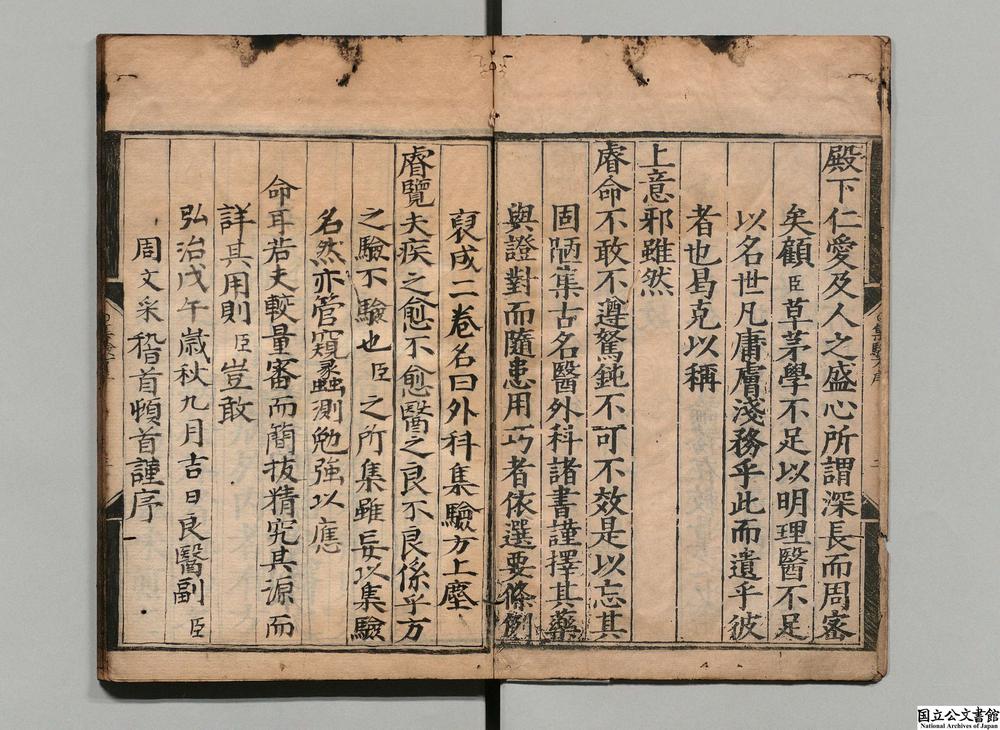 殿下仁愛及人之盛心所謂深長而周審
矣顧臣草茅學不足以明理醫不足
以名世凡庸膚淺務乎此而遺乎彼
者也曷克以稱
上意邪雖然
睿命不敢不遵駑鈍不可不效是以忘其
固陋集古名醫外科諸書謹擇其藥
與證對而隨患用巧者依選要條例
裒成二卷名曰外科集驗方上塵
睿覽夫疾之愈不愈醫之良不良係乎方
之驗不驗也臣之所集雖妄以集驗
名然亦管窺蠡測勉強以應
命耳若夫較量審而簡拔精究其源而
詳其用則臣豈敢
弘治戊午歲秋九月吉日良醫副臣
周文采稽首頓首謹序
国立公文書館
National Archives of Japan